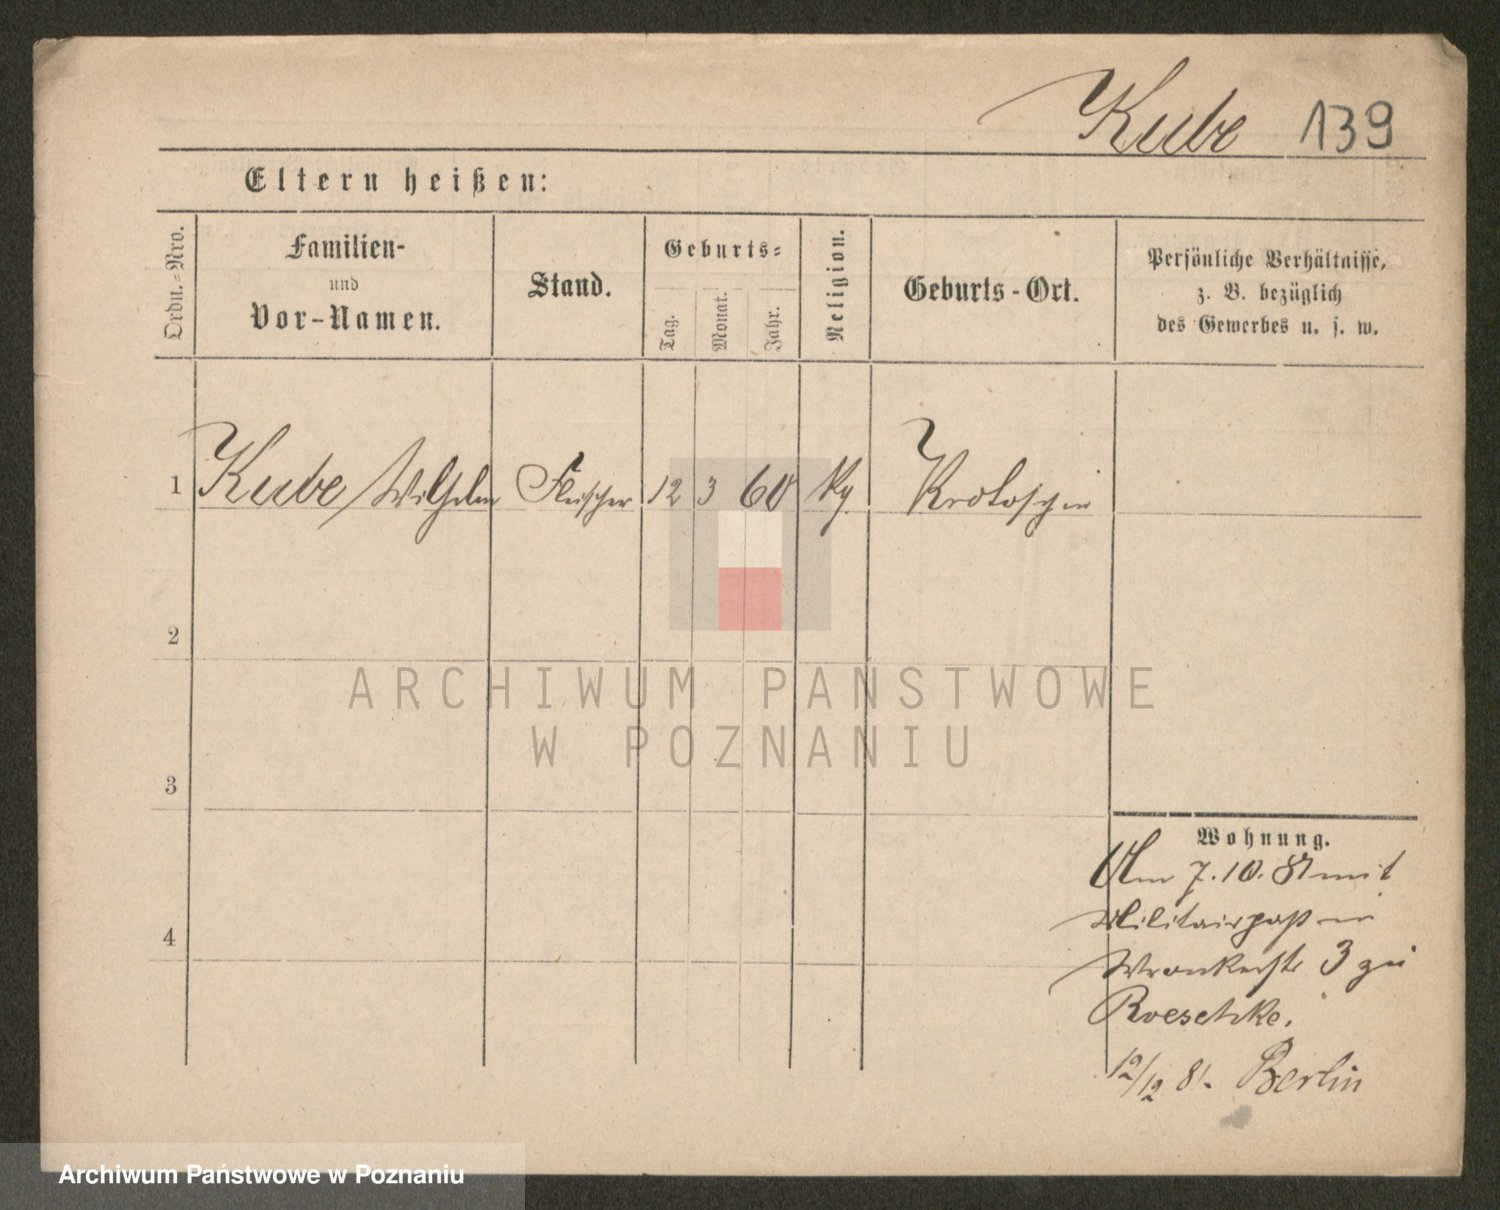 Kube 139
Eltern heißen:
Ordn.=Nro.
Familien-
und
Vor-Namen.
Stand.
Geburts=
Tag.
Monat.
Jahr.
Religion.
Geburts-Ort.
Persönliche Verhältnisse,
z. B. bezüglich
des Gewerbes u. s. w.
1 Kube Wilhelm Fleischer 12 3 60 Krotoschin
2
3
4
Wohnung.
Am 7.10.81 mit
Militairpaß in
Wronkerstr 3 zu
Roeschke.
12/12 81. Berlin
ARCHIWUM PAŃSTWOWE
W POZNANIU
Archiwum Państwowe w Poznaniu